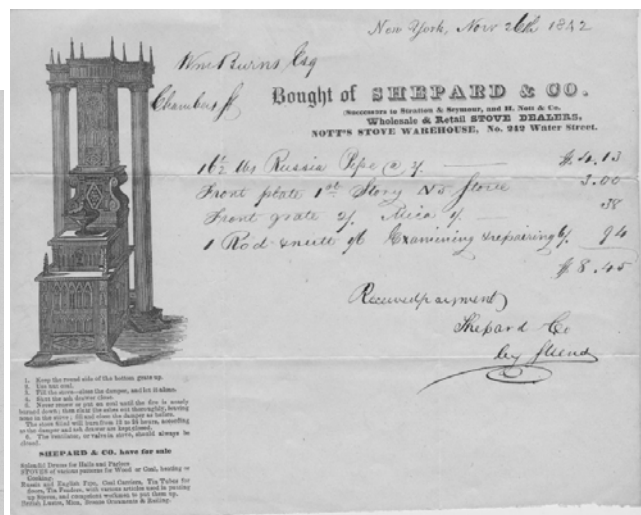 New York, Nov 26th 1842
Wm Burns Esq
Chambers St
Bought of SHEPARD & CO.
(Successors to Stratton & Seymour, and H. Nott & Co.
Wholesale & Retail STOVE DEALERS,
NOTT'S STOVE WAREHOUSE, No. 242 Water Street.
16½ lbs Russia Pipe @ 2/. $4.13
Front plate 1st Story No 5 Stove 3.00
Front grate 2/. Mica 1/. 38
1 Rod & nutt Examining & repairing 6/. 94
$8.45
Received payment
Shepard & Co
by
1. Keep the round side of the bottom grate up.
2. Use nut coal.
3. Fill the stove—close the damper, and let it alone.
4. Shut the ash drawer close.
5. Never renew or put on coal until the fire is nearly
burned down; then shut the ashes out thoroughly, leaving
none in the stove; fill and close the damper as before.
The stove filled will burn from 12 to 24 hours, according
as the damper and ash drawer are kept closed.
6. The ventilator, or valve in stove, should always be
closed.
SHEPARD & CO. have for sale
Splendid Drums for Halls and Parlors
STOVES of various patterns for Wood or Coal, heating or
Cooking.
Russia and English Pipe, Coal Carriers, Tin Tubes for
doors, Tin Fenders, with various articles used in putting
up Stoves, and competent workmen to put them up.
British Lustre, Mica, Bronze Ornaments & Railing.